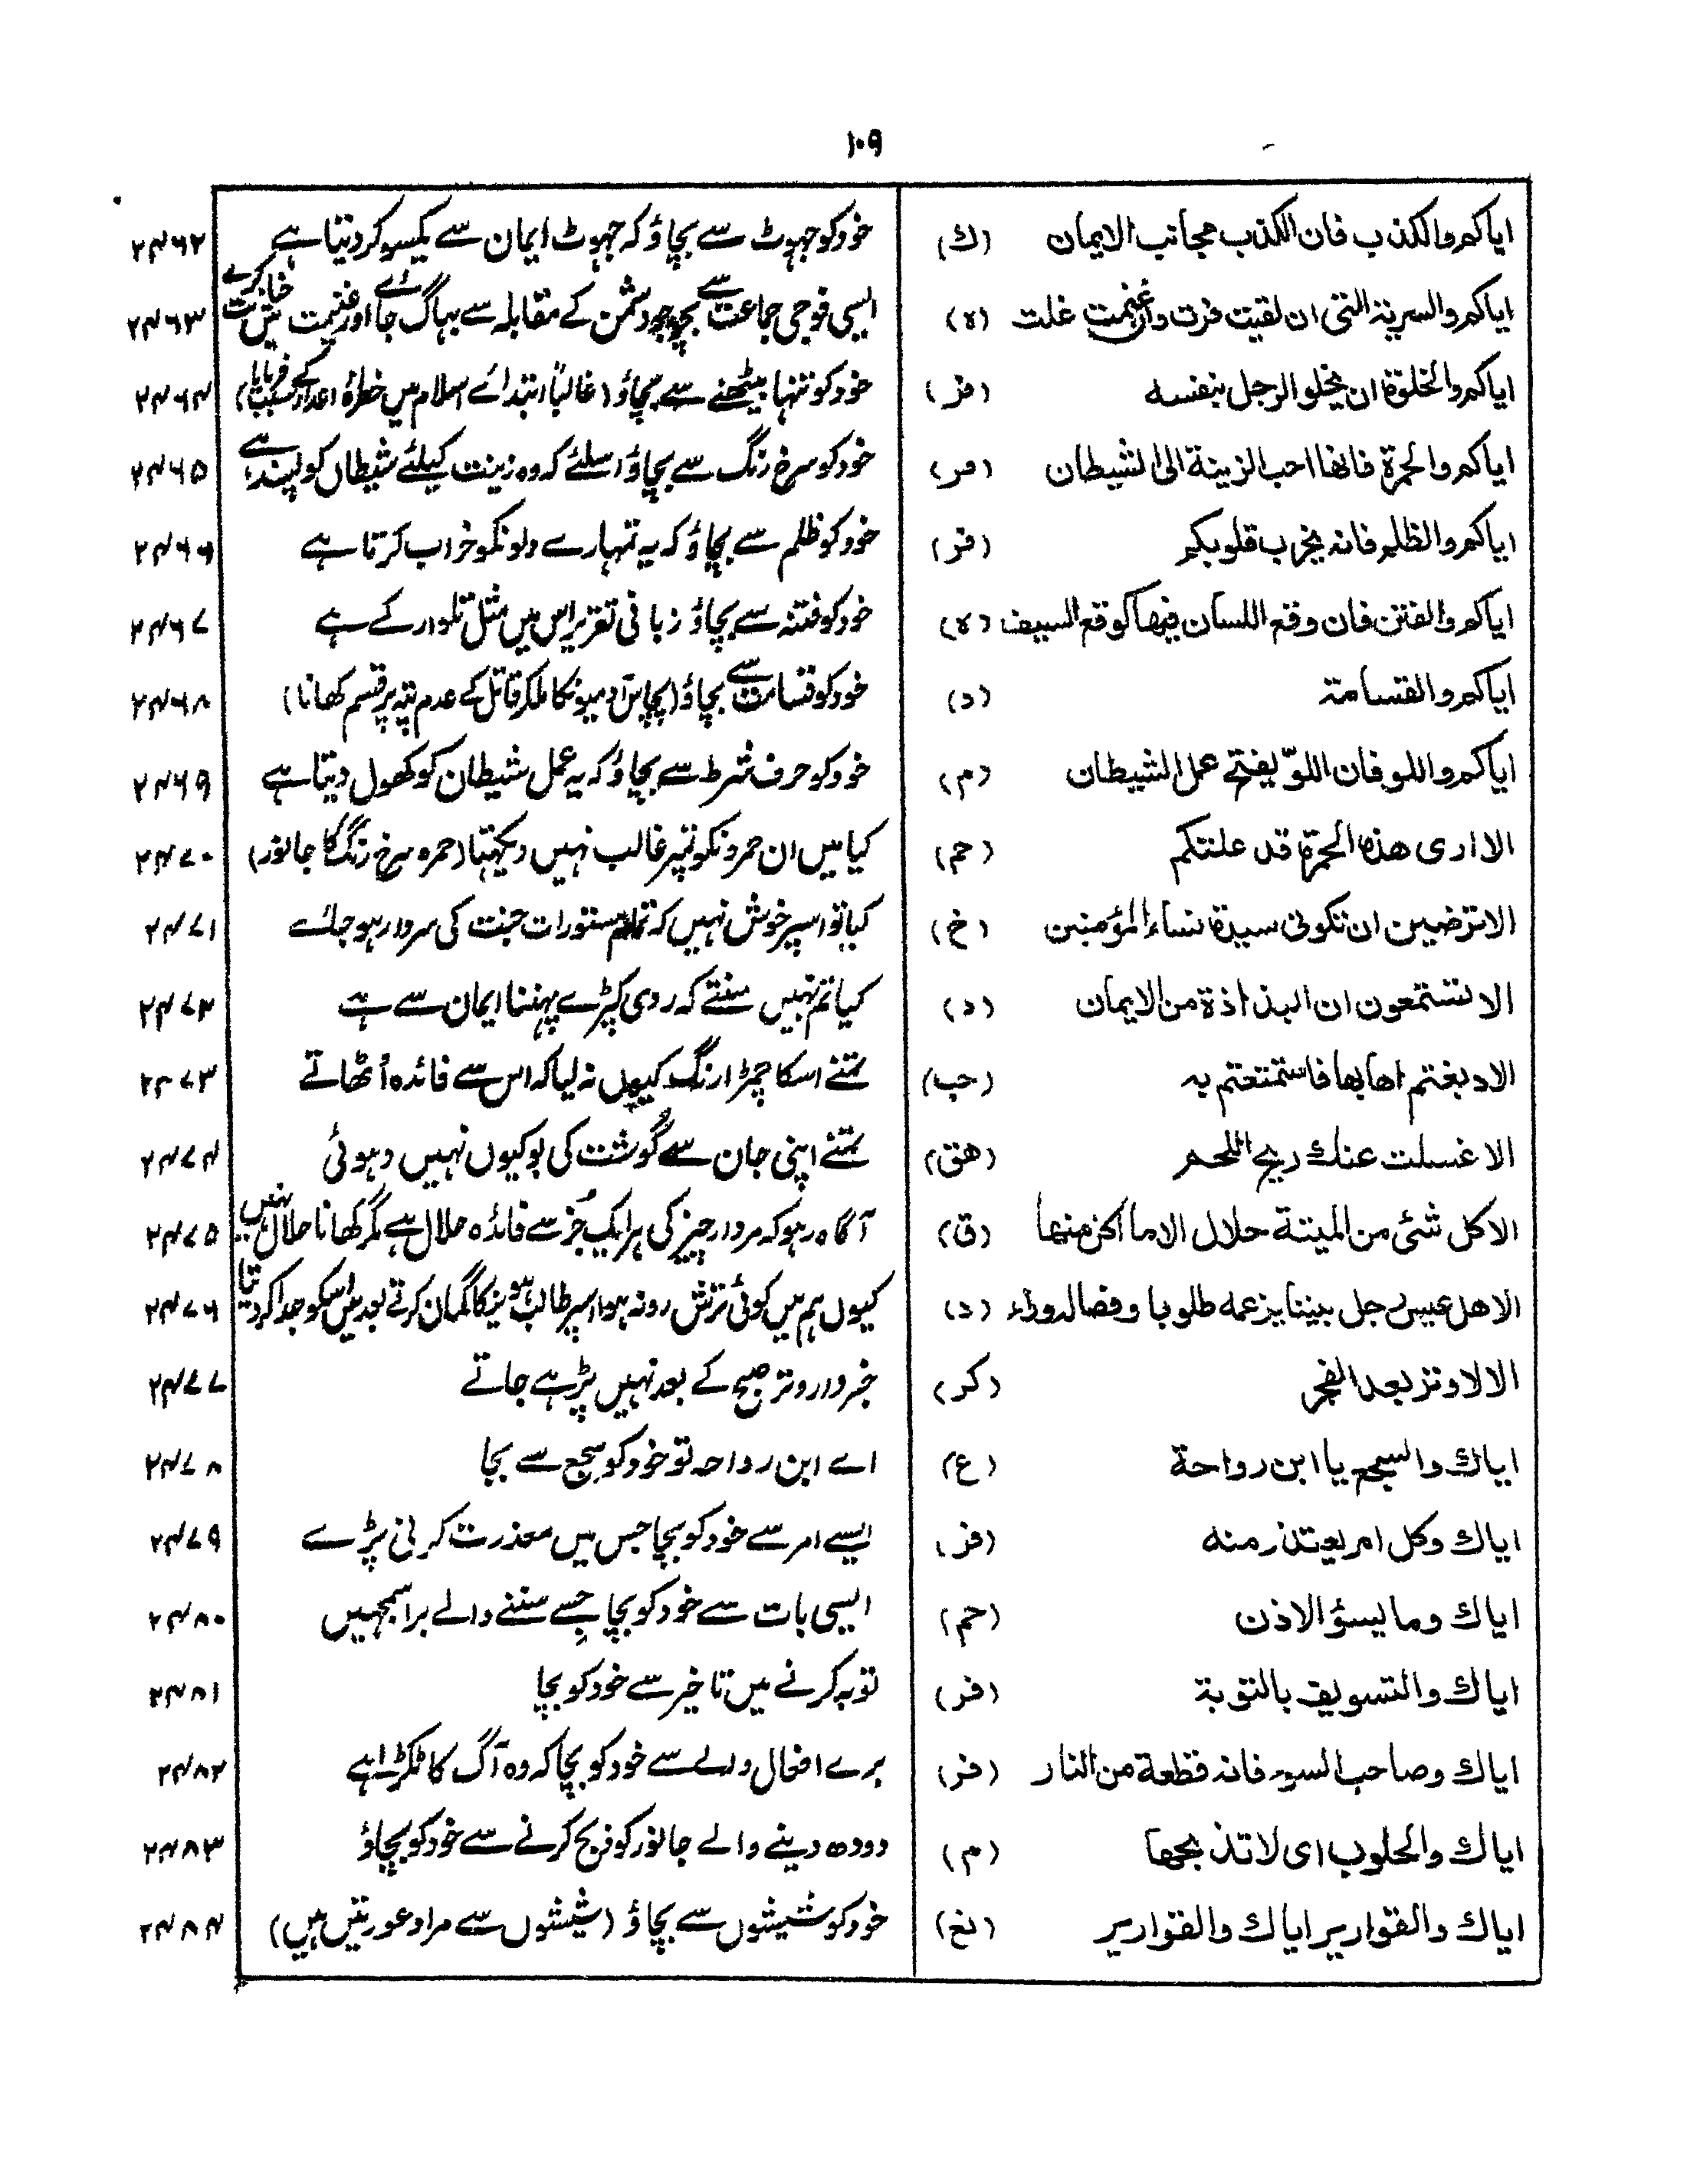 ۱۰۹
اياكم والكذب فان الكذب مجانب الايمان (ك) خودکو جہوٹ سے بچاؤ کہ جہوٹ ایمان سے یکسو کر دیتا ہے ۲۴۶۲
اياكم والسرية التى ان لقيت فرت وان غنمت غلت (ه) ایسی فوجی جماعت سے بچو جو دشمن کے مقابلہ سے بہاگ جائے اور غنیمت میں خیانت کرے ۲۴۶۳
اياكم والخلوة ان يخلو الرجل بنفسه (فر) خودکو تنہا بیٹھنے سے بچاؤ (غالباً ابتدائے اسلام میں خطرۂ اعدا کے سبب فرمایا) ۲۴۶۴
اياكم والحمرة فانها احب الزينة الى الشيطان (مر) خودکو سرخ رنگ سے بچاؤ اسلئے کہ وہ زینت کیلئے شیطاں کو پسند ہے ۲۴۶۵
اياكم والظلم فانه يخرب قلوبكم (فر) خودکو ظلم سے بچاؤ کہ یہ تمہارے دلونکو خراب کرتا ہے ۲۴۶۶
اياكم والفتن فان وقع اللسان فيها كوقع السيف (ه) خودکو فتنہ سے بچاؤ زبانی تقریر اس میں مثل تلوار کے ہے ۲۴۶۷
اياكم والقسامة (د) خودکو قسامت سے بچاؤ (پچاس آدمیونکا ملکر قاتل کے عدم پتہ پر قسم کھانا) ۲۴۶۸
اياكم واللو فان اللوّ يفتح عمل الشيطان (م) خودکو حرف شرط سے بچاؤ کہ یہ عمل شیطان کو کھول دیتا ہے ۲۴۶۹
الا ارى هذه الحمرة قد علتكم (حم) کیا میں ان حمرونکو تمپر غالب نہیں دیکہتا (حمرہ سرخ رنگ کا جانور) ۲۴۷۰
الا ترضين ان تكونى سيدة نساء المؤمنين (خ) کیا تو اسپر خوش نہیں کہ تمام مستورات جنت کی سردار ہو جائے ۲۴۷۱
الا تستمعون ان البذاذة من الايمان (د) کیا تم نہیں سنتے کہ ردی کپڑے پہننا ایمان سے ہے ۲۴۷۲
الا دبغتم اهابها فاستمتعتم به (حب) تمنے اسکا چمڑا رنگ کیوں نہ لیا کہ اس سے فائدہ اُٹھاتے ۲۴۷۳
الا غسلت عنك ريح اللحم (هق) تمنے اپنی جان سے گوشت کی بو کیوں نہیں دہوئی ۲۴۷۴
الا كل شئ من الميتة حلال الا ما اكل منها (ق) آگاہ رہو کہ مردار چیز کی ہر ایک جز سے فائدہ حلال ہے مگر کھانا حلال نہیں ۲۴۷۵
الا هل عيسى رجل بيننا يزعمه طلوبا وفصاله وراء (د) کیوں ہم میں کوئی ترش رو نہ ہوا اسپر طالب ہونیکا گمان کرتے بعد میں اسکو جدا کر دیتا ۲۴۷۶
الا لا وتر بعد الفجر (كر) خبردار وتر صبح کے بعد نہیں پڑہے جاتے ۲۴۷۷
اياك والسجع يا ابن رواحة (ع) اے ابن رواحہ تو خودکو سجع سے بچا ۲۴۷۸
اياك وكل امر يعتذر منه (فر) ایسے امر سے خودکو بچا جس میں معذرت کرنی پڑے ۲۴۷۹
اياك وما يسؤ الاذن (حم) ایسی بات سے خودکو بچا جسے سننے والے برا سمجہیں ۲۴۸۰
اياك والتسويف بالتوبة (فر) توبہ کرنے میں تاخیر سے خودکو بچا ۲۴۸۱
اياك وصاحب السوء فانه قطعة من النار (فر) برے افعال والے سے خودکو بچا کہ وہ آگ کا ٹکڑا ہے ۲۴۸۲
اياك والحلوب اى لا تذبحها (م) دودھ دینے والے جانور کو ذبح کرنے سے خودکو بچاؤ ۲۴۸۳
اياك والقوارير اياك والقوارير (نخ) خودکو شیشوں سے بچاؤ (شیشوں سے مراد عورتیں ہیں) ۲۴۸۴